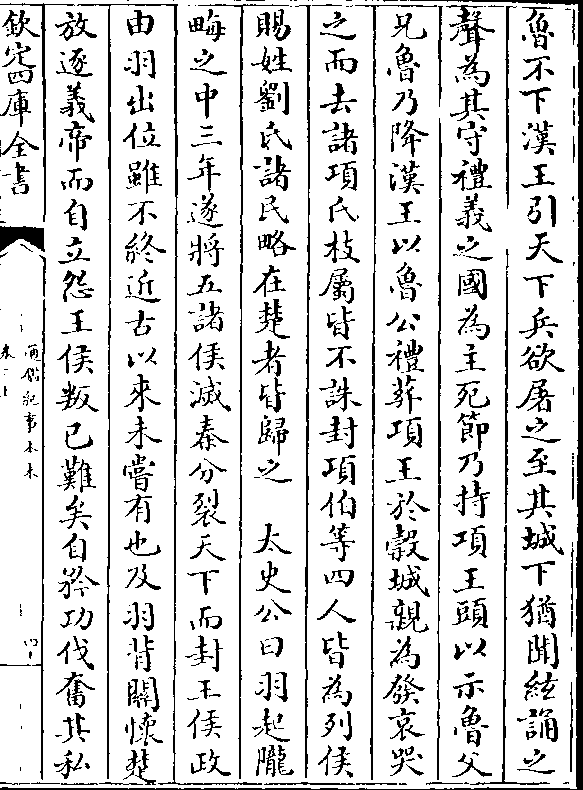 魯不下漢王引天下兵欲屠之至其城下猶聞絃誦之
聲為其守禮義之國為主死節乃持項王頭以示魯父
兄魯乃降漢王以魯公禮葬項王於穀城親為發哀哭
之而去諸項氏枝屬皆不誅封項伯等四人皆為列侯
賜姓劉氏諸民略在楚者皆歸之　太史公曰羽起隴
畮之中三年遂將五諸侯滅秦分裂天下而封王侯政
由羽出位雖不終近古以來未嘗有也及羽背關懷楚
放逐義帝而自立怨王侯叛已難矣自矜功伐奮其私
欽定四庫全書
通鑑紀事本末